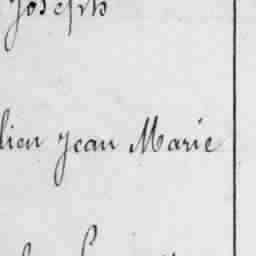 Joseph
lien Jean Marie